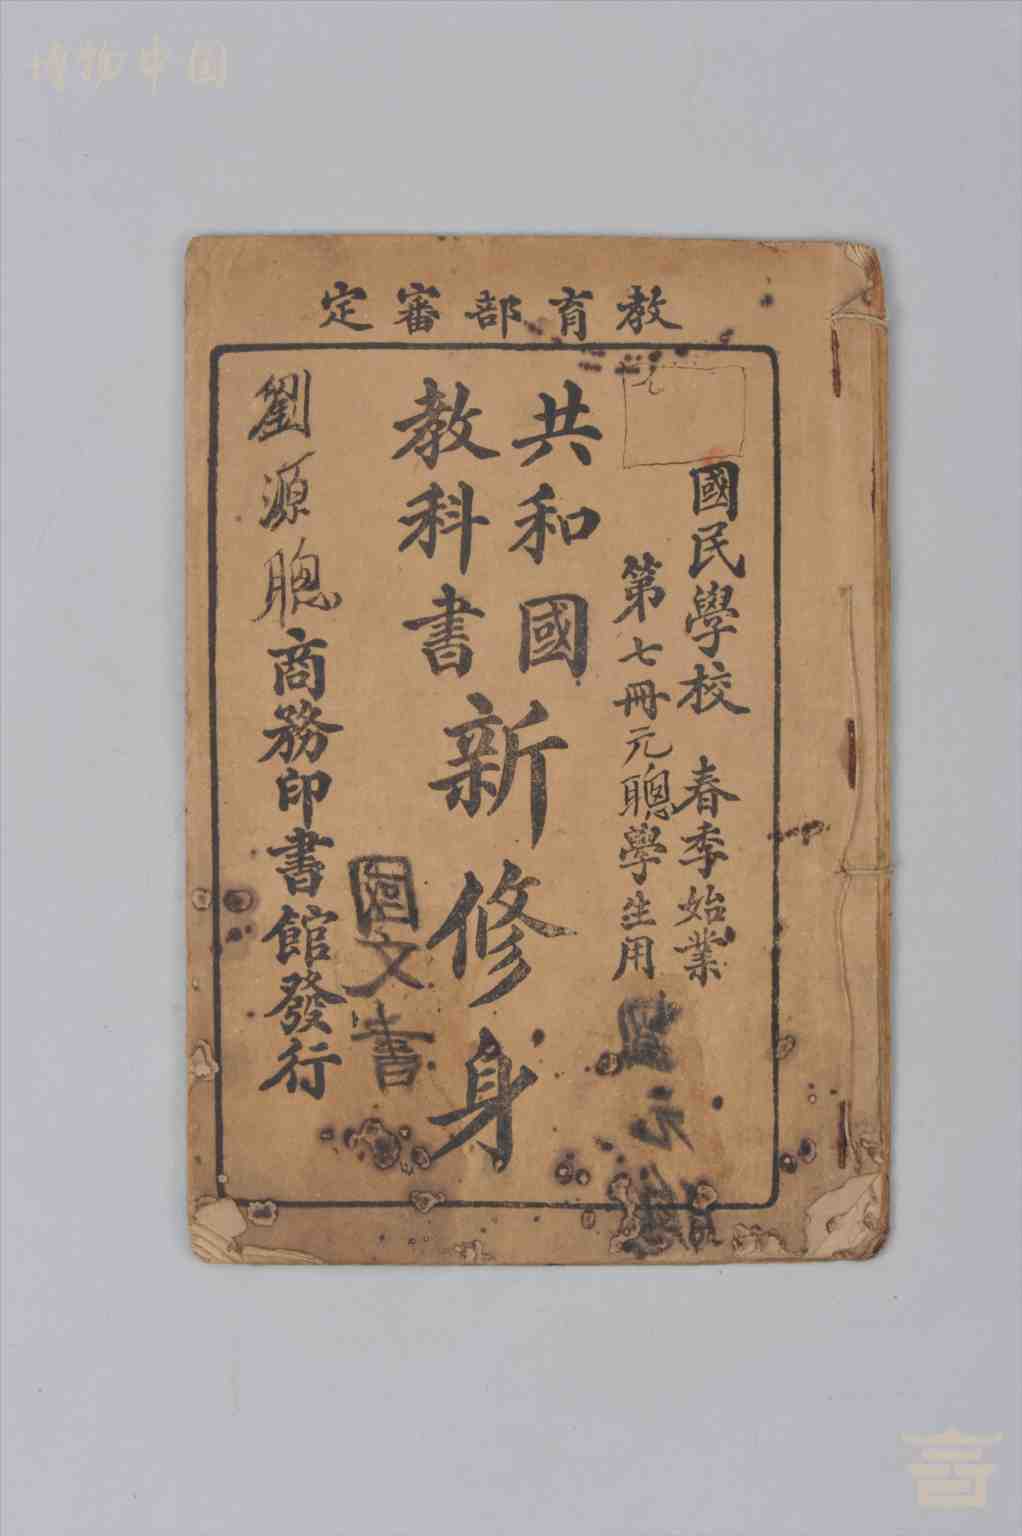 博物中国
教育部審定
國民學校 春季始業
第七冊元聰學生用
共和國
教科書
新修身
文書
劉源聰
商務印書館發行